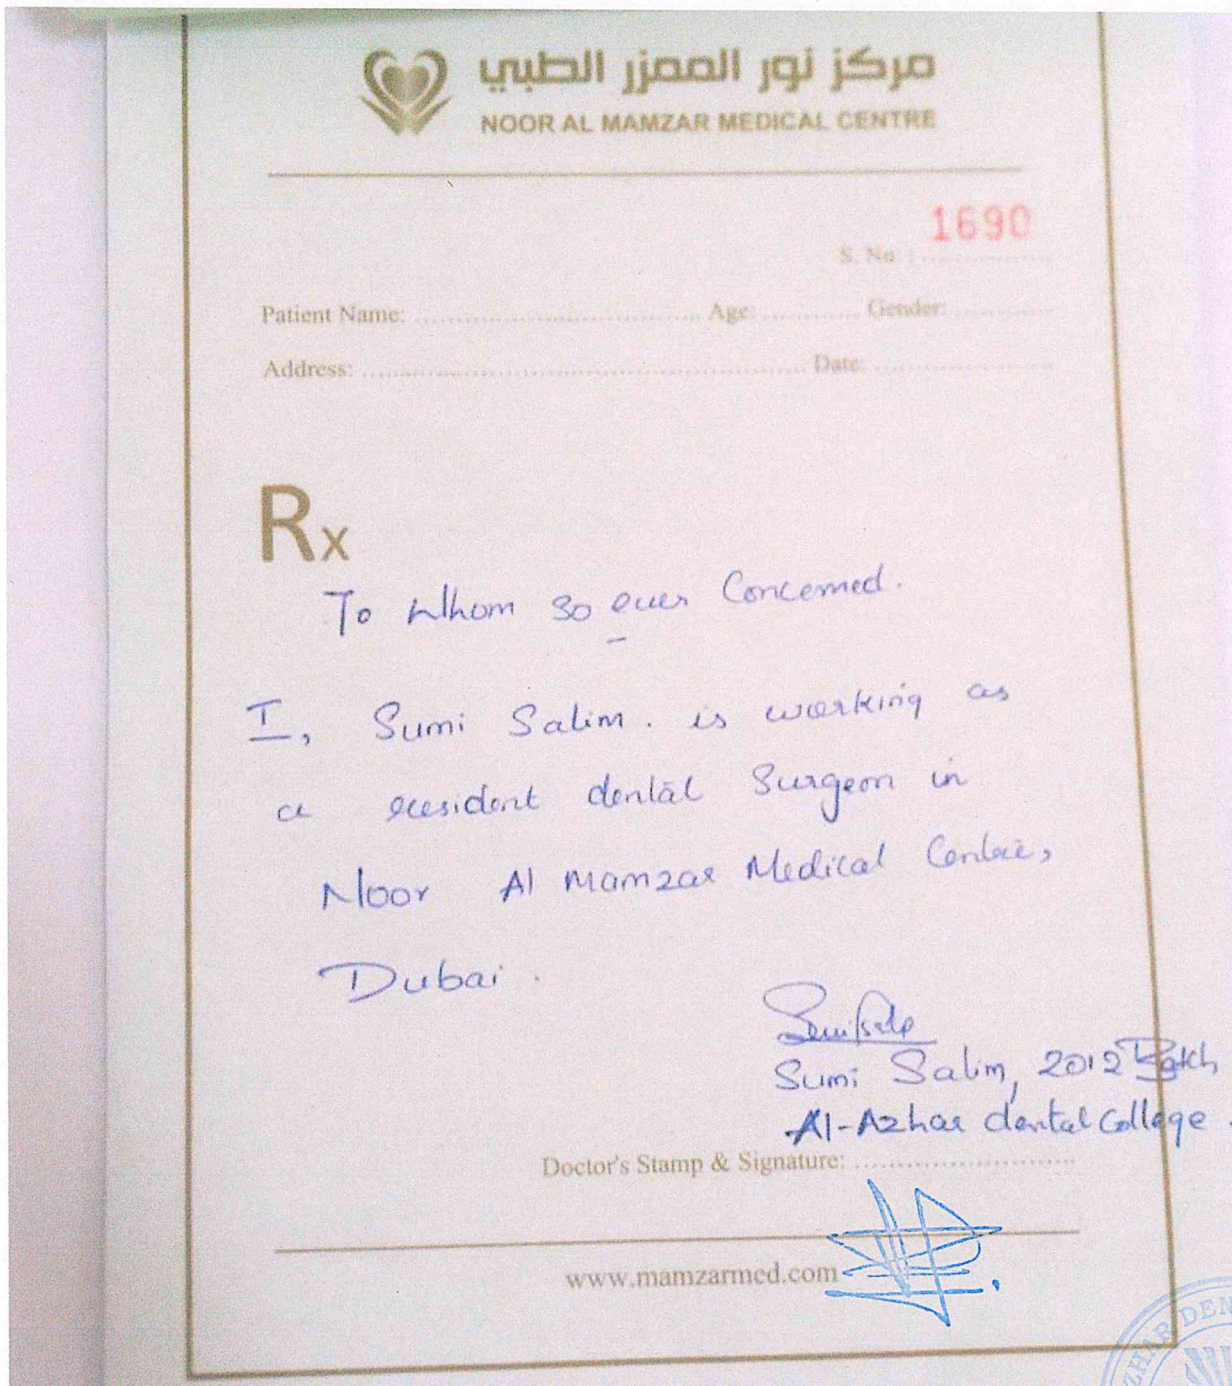 مركز نور الممزر الطبي
NOOR AL MAMZAR MEDICAL CENTRE
1690
S. No :
Patient Name: Age: Gender:
Address: Date:
Rx
To Whom So ever Concerned.
I, Sumi Salim. is working as
a resident dental Surgeon in
Noor Al Mamzar Medical Centre,
Dubai.
Sumi Salim, 2012 Batch
Al-Azhar dental College.
Doctor's Stamp & Signature:
www.mamzarmed.com